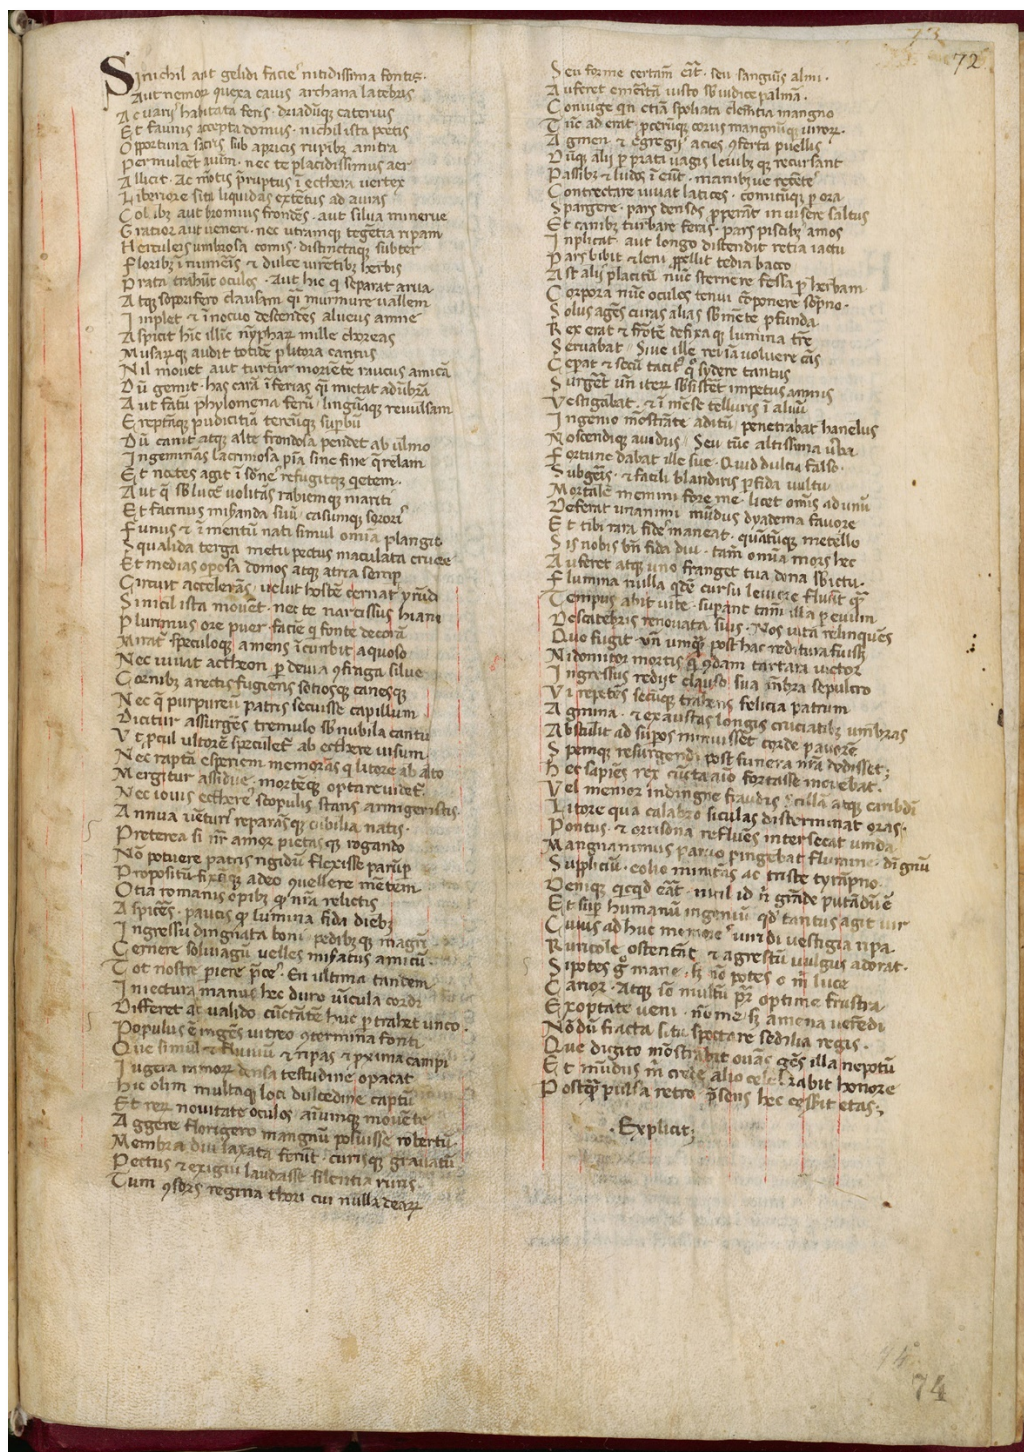 72
Si nichil aut gelidi facies nitidissima fontis.
Aut nemorum quexa cavis archana latebris
Ac varijs habitata feris. driadumque catervis
Et faunis accepta domus. nichil ista poetis
Opportuna sacris sub apricis rupibus antra
Permulcent animum. nec te placidissimus aer
Allicit. Ac montis preruptus in ecthera vertex
Liberiore situ liquidas extentus ad auras
Collibus aut bromius frondens. aut silva minerve
Gratior aut veneri. nec utramque tegentia ripam
Herculeis umbrosa comis. distinctaque subter
Floribus innumeris et dulce virentibus herbis
Prata trahunt oculos. Aut hic qui separat arva
Atque soporifero clausam qui murmure vallem
Implet et innocuo descendens alveus amne
Aspicit hic illic nympharum mille choreas
Musarumque audit totidem per litora cantus
Nil movet aut turtur moriente raucus amica
Dum gemit. has caram inferias qui mictat ad umbram
Aut fatum phylomena ferum linguamque revulsam
Ereptamque pudicitiam tereumque superbum
Dum canit atque alte frondosa pendet ab ulmo
Ingeminans lacrimosa piam sine fine querelam
Et noctes agit insomnes refugitque quetem.
Aut que sub lucem volitans rabiemque mariti
Et facinus mifanda suum casumque sororis
Funus et immeritum nati simul omnia plangit
Squalida terga metu pectus maculata cruore
Et medias oposita domos atque atria semper
Circuit accelerans. velut hostem cernat yrundo
Si nicil ista movent. nec te narcissus hiani
Plurimus ore puer. facie qui fonte decora
Miratur speculoque amens incumbit aquoso
Nec iuvat actheon per devia confraga silve
Cornibus arectis fugiens sotiosque canesque
Nec que purpureum patris secuisse capillum
Dicitur assurgens tremulo sub nubila cantu
Ut procul ultorem speculetur ab ecthere visum
Nec raptam esperiem memorans qui litore ab alto
Mergitur assidue. mortemque optare videtur
Nec iovis ecthereis scopulis stans armiger istis.
Annua venturis reparansque cubilia natis.
Preterea si noster amor pietasque rogando
Non potuere patris rigidum flexisse parumper
Propositum fixamque adeo convellere mentem
Otia romanis opibus que nostra relictis
Aspiceres. paucis que lumina fida diebus
Ingressu dingnata boni pedibusque magistri
Cernere solivagum velles mifatus amicum.
Tot nostre periere preces. En ultima tandem
Iniectura manus hec duro vincula cordi
Differet ac valido cunctantem huc pertrahet unco.
Populus est ingens vitreo contermina fonti
Que simul et fluvium et ripas et proxima campi
Iugera ramorum densa testudine opacat
Hic olim multaque loci dulcedine captum
Et rerum novitate oculos animumque movente
Aggere florigero mangnum posuisse robertum.
Membra diu laxata ferunt. curisque gravatum
Pectus et exigui laudasse silentia ruris.
Tum consors regina thori cui nulla dearum
Seu forme certamen erit. seu sanguinis almi.
Auferet emeritam iusto sub iudice palmam.
Coniuge quin etiam spoliata clementia mangno
Tunc aderat. procerumque corus mangnumque virorum.
Agmen. et egregij acies conferta puellis
Dumque alij per prati vagis levibusque recursant
Passibus et ludos ineunt. manibusve recentes
Contrectare iuvat latices. comitumque per ora
Spargere. pars densos properant invisere saltus
Et canibus turbare feras. pars piscibus amos
Inplicat. aut longo distendit retia iactu
Pars bibit et leni propellit tedia bacco
Ast alijs placitum nunc sternere fessa per herbam
Corpora nunc oculos tenui componere sompno.
Solus agens curas alias sub mente profunda
Rex erat et frontem defixaque lumina terre
Servabat. Sive ille rei iam volvere causas
Ceperat et secum tacitus quo sydere tantus
Surgeret unde iterum subsisteret impetus amnis
Vestigabat. et immense telluris in alvum
Ingenio monstrante aditum penetrabat hanelus
Noscendique avidus. Seu tunc altissima verba
Fortune dabat ille sue. Quid dulcia falso.
Subgeris. et facili blandiris perfida vultu
Mortalem memini fore me. licet omnis ad unum
Deferat unanimi mundus dyadema favore
Et tibi rara fides maneat. quantumque metello
Sis nobis bene fida diu. tamen omnia mors hec
Auferet atque uno franget tua dona sub ictu.
Flumina nulla quidem cursu leviore fluunt quam
Tempus abit vite. superant tamen illa per evum
Descatebris renovata suis. Nos vita relinquens
Quo fugit. unde umquam post hac reditura fuisset
Ni domitor mortis quondam tartara victor
Ingressus redijt clauso sua membra sepulcro
Vi repetens secumque trahens felicia patrum
Agmina. et exaustas longis cruciatibus umbras
Abstulit ad superos minuisset corde pavorem
Spemque resurgendi post funera nostra dedisset;
Hec sapiens rex cuncta animo fortasse movebat.
Vel memor indingne fraudis scilla atque caribdi
Litore qua calabro siculas disterminat oras.
Pontus. et orisona refluens intersecat unda
Mangnanimus parvo pingebat flumine. dignum
Supplicium. colio minitans ac triste tyrampno.
Denique quicquid erat. nicil id non grande putandum est
Et super humanum ingenium quod tantus agit vir
Cuius adhuc memores viridi vestigia ripa.
Ruricole ostentant. et agrestum vulgus adorat.
Si potes ergo mane. sed non potes o mihi luce
Carior. Atque son multum pater optime frustra
Exoptate veni. non me. sed amena vefendi
Nondum fracta situ spectare sedilia regis.
Que digito monstrabit ovans gens illa nepotum
Et mundus mihi crede alio celebrabit honore
Postquam pulsa retro. presens hec cesserit etas;
.Explicit;
74